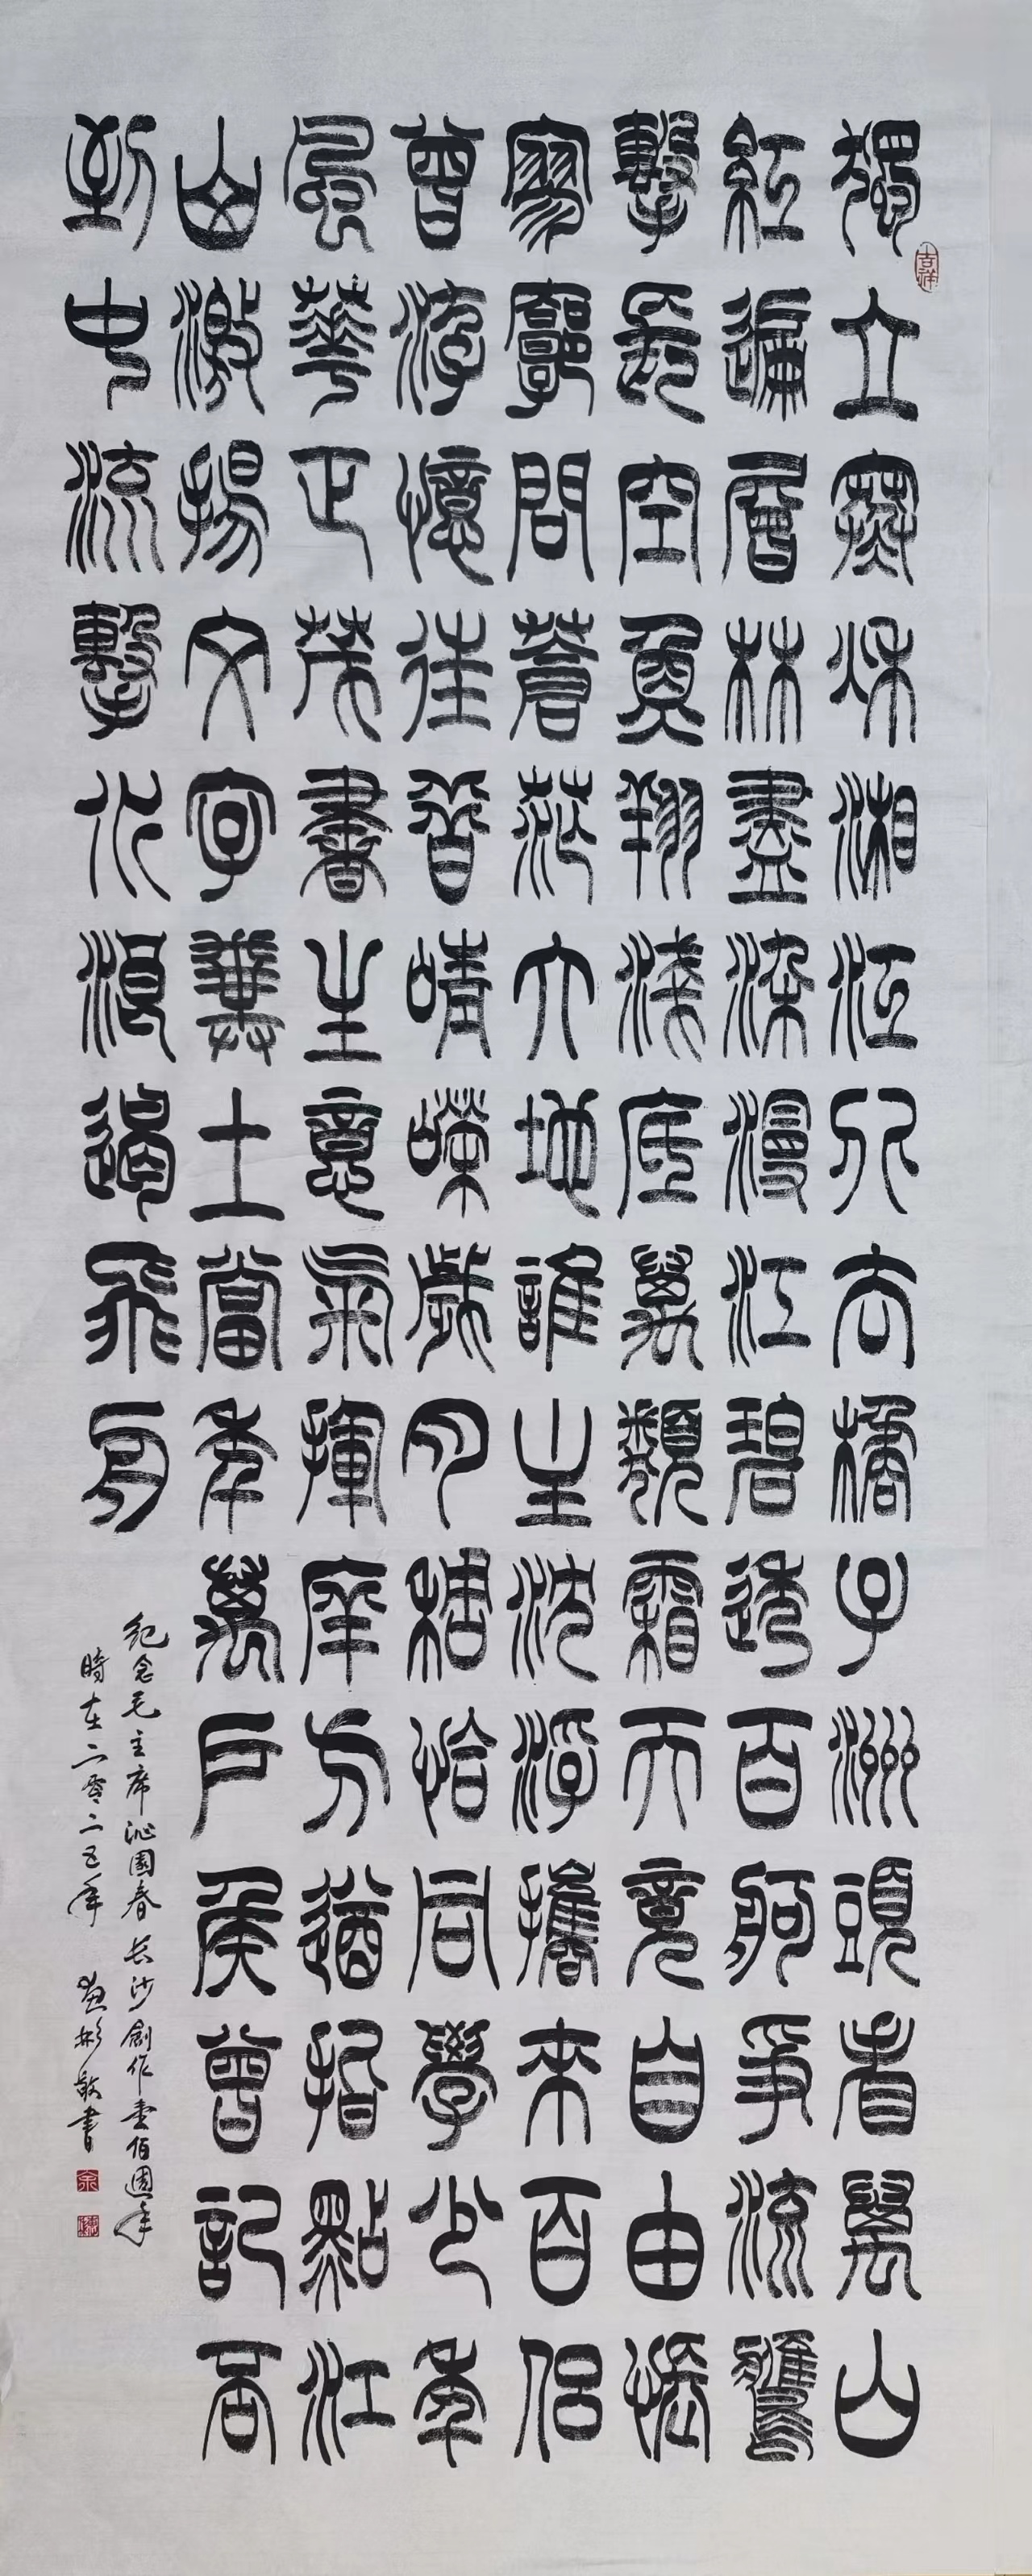 獨立寒秋湘江北去橘子洲頭看萬山
紅遍層林盡染漫江碧透百舸爭流鷹
擊長空魚翔淺底萬類霜天競自由悵
寥廓問蒼茫大地誰主沈浮攜來百侶
曾游憶往昔崢嶸歲月稠恰同學少年
風華正茂書生意氣揮斥方遒指點江
山激揚文字糞土當年萬戶侯曾記否
到中流擊水浪遏飛舟
紀念毛主席沁園春长沙創作壹佰週年
時在二零二五年 彬敬書
吉祥